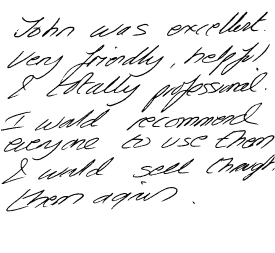 John was excellent.
Very friendly, helpful
& totally professional.
I would recommend
everyone to use them
& would sell through
them again.